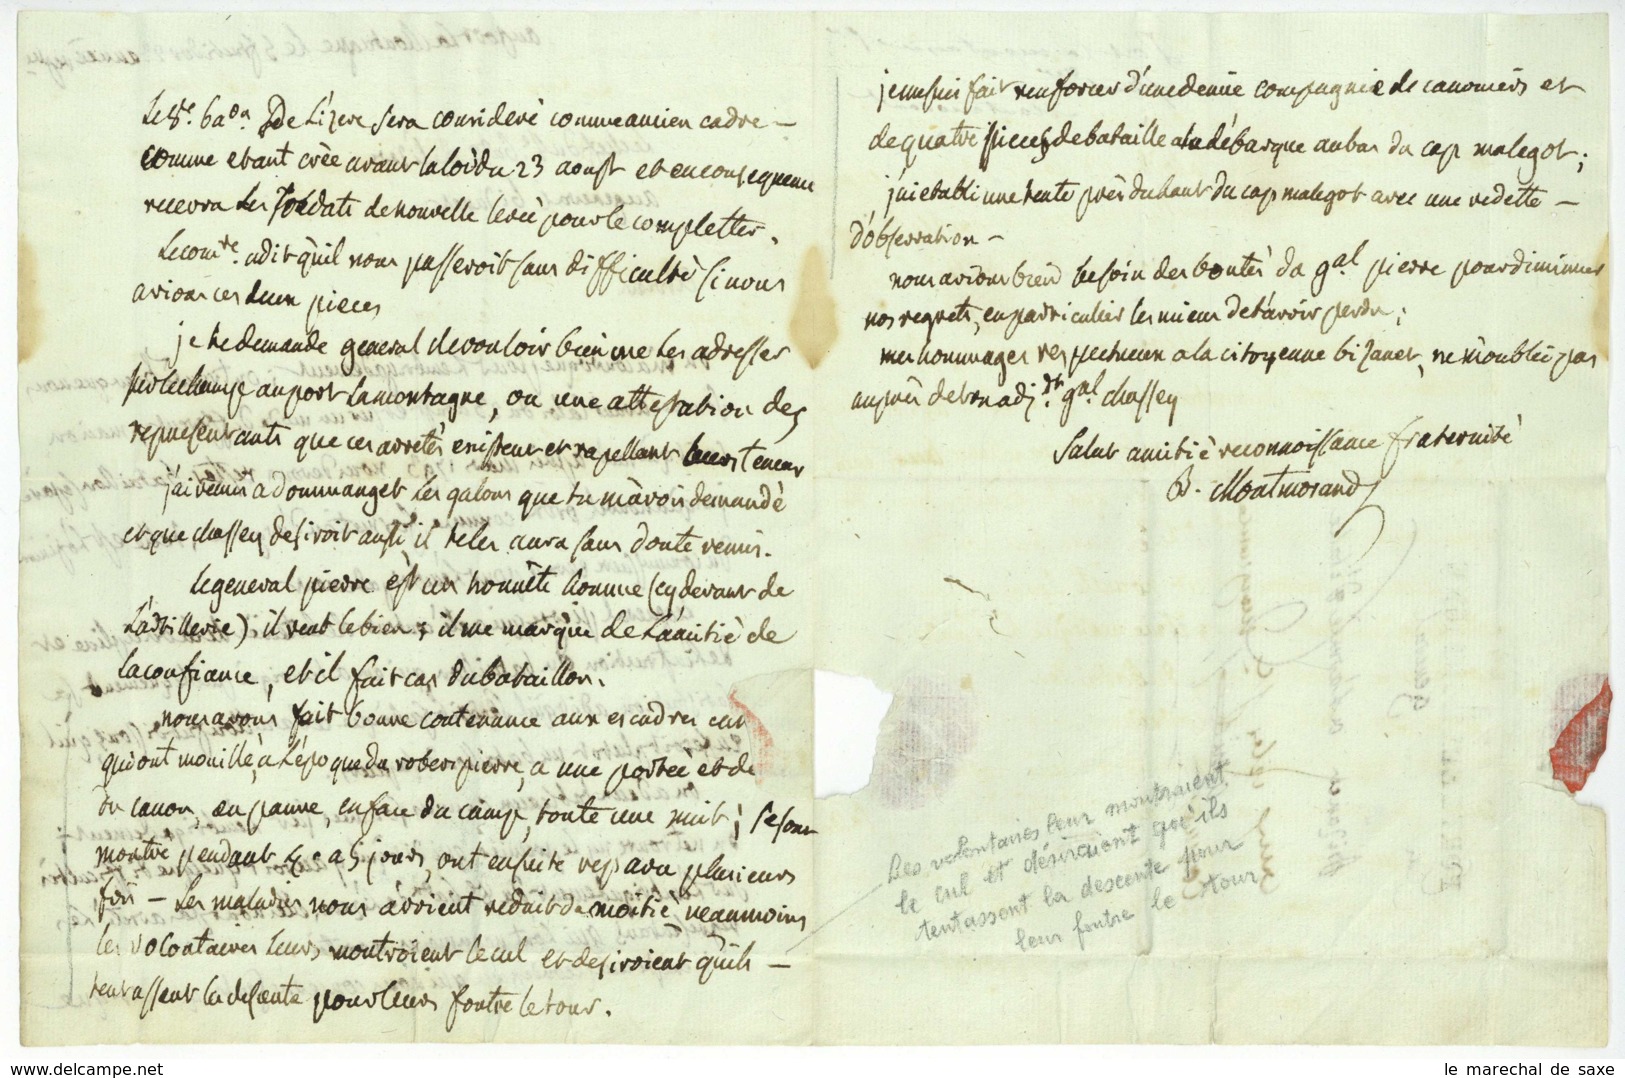 Le 8e. baon. de L'izere sera consideré comme ancien cadre —
comme etant crée avant la loi du 23 aoust et en consequence
recevra les soldats de nouvelle levée pour le completter.
Le comre. a dit qu'il nous passeroit sans difficulté si nous
avions ces deux pieces
je te demande general de vouloir bien me les adresser
sur le champ au port la montagne, ou une attestation des
representants que ces arretés existent et rapellant leurs teneur
j'ai remis a dommanget les galons que tu m'avois demandé
et que chassey desiroit aussi, il te les aura sans doute remis.
le general pierre est un honnête homme (cy devant de
L'artillerie) il veut le bien; il me marque de L'amitié de
la confiance, et il fait cas du bataillon.
nous avons fait bonne contenance aux escadres
qui ont mouillé, a L'époque du robespierre, a une portée et de
du canon, en panne, en face du camp, toute une nuit; se sont
montré pendant 4 a 5 jours, ont ensuite reparu plusieurs
fois — Les maladies nous avoient reduit de moitié neanmoins
les volontaires leurs montroient le cul et desiroient qu'ils —
tentassent la desente pour leurs foutre le tour.
je me suis fait renforcer d'une demie compagnie de canoniers et
de quatre pieces de bataille a la débarque au bas du cap malegot;
j'ai etabli une tente près du haut du cap malegot avec une vedette —
d'observation —
nous avions bien besoin des bontés du gal pierre pour diminuer
nos regrets, en particulier les miens de t'avoir perdu;
mes hommages respectueux a la citoyenne bizanet, ne m'oublie pas
auprès de ton adjdt. gal. chassey
Salut amitié reconnoissance fraternité
B. Montmorand
Les volontaires leur montraient
le cul et désiraient qu'ils
tentassent la descente pour
leur foutre le tour
le marechal de saxe
delcampe.net